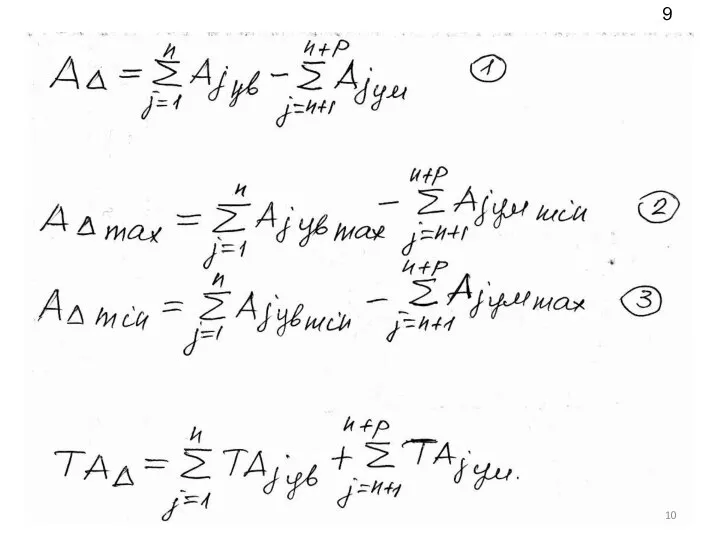 9
AΔ = Σ_{j=1}^{n} Aj ув − Σ_{j=n+1}^{n+p} Aj ум (1)
AΔ max = Σ_{j=1}^{n} Aj ув max − Σ_{j=n+1}^{n+p} Aj ум min (2)
AΔ min = Σ_{j=1}^{n} Aj ув min − Σ_{j=n+1}^{n+p} Aj ум max (3)
TAΔ = Σ_{j=1}^{n} TAj ув + Σ_{j=n+1}^{n+p} TAj ум.
10